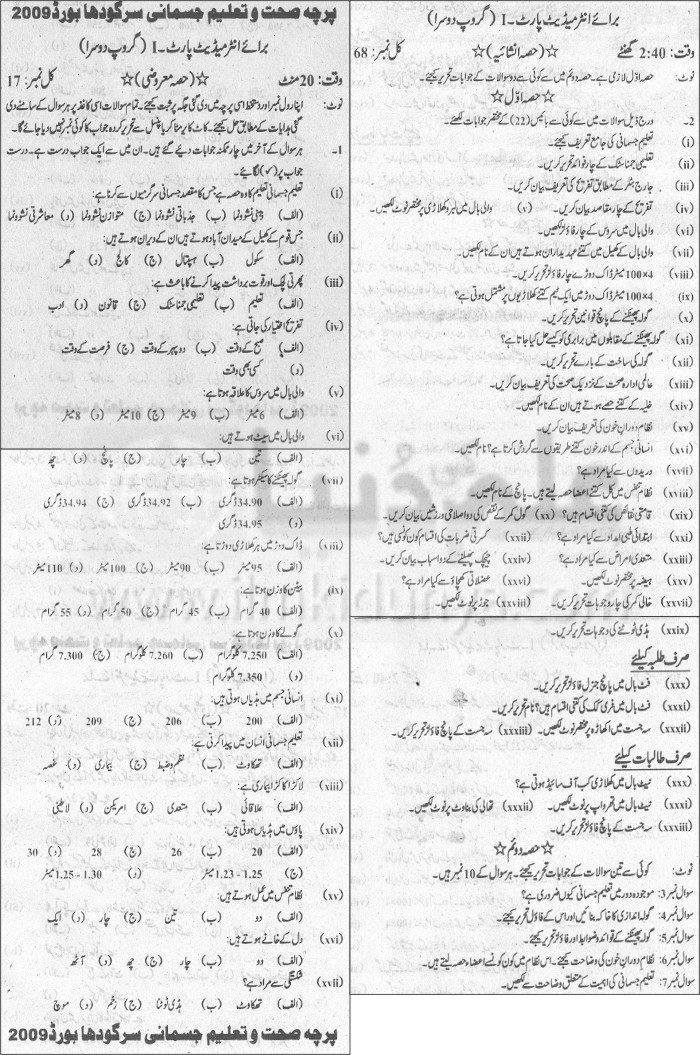 پرچہ صحت و تعلیم جسمانی سرگودھا بورڈ 2009
برائے انٹرمیڈیٹ پارٹ-I (گروپ دوسرا)
وقت: 20 منٹ ☆(حصہ معروضی)☆ کل نمبر: 17
نوٹ: اپنا رول نمبر اور دستخط اسی پرچہ میں دی گئی جگہ پر ثبت کیجئے۔ تمام سوالات اسی کاغذ پر ہر سوال کے سامنے دی
گئی ہدایات کے مطابق حل کیجئے۔ کاٹ کر یا مٹا کر یا پنسل سے تحریر کردہ جواب کا کوئی نمبر نہیں دیا جائے گا۔
1- ہر سوال کے آخر میں چار ممکنہ جوابات دیے گئے ہیں۔ ان میں سے ایک جواب درست ہے۔ درست
جواب پر (✓) لگائیے۔
(i) تعلیم جسمانی تعلیم کا وہ حصہ ہے جس کا مقصد جسمانی سرگرمیوں سے کرنا ہے:
(الف) ذہنی نشوونما (ب) جذباتی نشوونما (ج) متوازن نشوونما (د) معاشرتی نشوونما
(ii) جس قوم کے کھیل کے میدان آباد ہوتے ہیں ان کے ویران ہوتے ہیں:
(الف) سکول (ب) ہسپتال (ج) کالج (د) گھر
(iii) پھرتی لچک اور قوت برداشت پیدا کرنے کا باعث ہے:
(الف) تعلیم (ب) تعلیمی جمناسٹک (ج) قانون (د) ادب
(iv) تفریح اختیار کی جاتی ہے:
(الف) صبح کے وقت (ب) دوپہر کے وقت (ج) فرصت کے وقت
(د) کسی بھی وقت
(v) والی بال میں سروس کا علاقہ ہوتا ہے:
(الف) 6 میٹر (ب) 9 میٹر (ج) 10 میٹر (د) 8 میٹر
(vi) والی بال میں سیٹ ہوتے ہیں:
(الف) تین (ب) چار (ج) پانچ (د) چھ
(vii) گولہ پھینکنے کا سیکٹر ہوتا ہے:
(الف) 34.90 ڈگری (ب) 34.92 ڈگری (ج) 34.94 ڈگری
(د) 34.95 ڈگری
(viii) ڈاک دوڑ میں ہر کھلاڑی دوڑتا ہے:
(الف) 95 میٹر (ب) 90 میٹر (ج) 100 میٹر (د) 110 میٹر
(ix) بیٹن کا وزن ہوتا ہے:
(الف) 40 گرام (ب) 45 گرام (ج) 50 گرام (د) 55 گرام
(x) گولے کا وزن ہوتا ہے:
(الف) 7.250 کلوگرام (ب) 7.260 کلوگرام (ج) 7.300 گرام
(د) 7.350 کلوگرام
(xi) انسانی جسم میں ہڈیاں ہوتی ہیں:
(الف) 200 (ب) 206 (ج) 209 (د) 212
(xii) تعلیم جسمانی انسان میں پیدا کرتی ہے:
(الف) تھکاوٹ (ب) نظم وضبط (ج) بیماری (د) غصہ
(xiii) لاکڑا کاکڑا بیماری ہے:
(الف) علاقائی (ب) متعدی (ج) امریکن (د) لاطینی
(xiv) پاؤں میں ہڈیاں ہوتی ہیں:
(الف) 20 (ب) 26 (ج) 28 (د) 30
(ج) 1.25 - 1.23 میٹر (د) 1.30 - 1.25 میٹر
(xv) نظام تنفس میں عمل ہوتے ہیں:
(الف) دو (ب) تین (ج) چار (د) ایک
(xvi) دل کے خانے ہوتے ہیں:
(الف) دو (ب) چار (ج) چھ (د) آٹھ
(xvii) شکستگی سے مراد ہے؟
(الف) تھکاوٹ (ب) ہڈی ٹوٹنا (ج) زخم (د) موچ
پرچہ صحت و تعلیم جسمانی سرگودھا بورڈ 2009
برائے انٹرمیڈیٹ پارٹ-I (گروپ دوسرا)
وقت: 2:40 گھنٹے ☆(حصہ انشائیہ)☆ کل نمبر: 68
نوٹ: حصہ اوّل لازمی ہے۔ حصہ دوم میں سے کوئی سے دو سوالات کے جوابات تحریر کیجئے۔
☆ حصہ اوّل ☆
2- درج ذیل سوالات میں سے کوئی سے بائیس (22) کے مختصر جوابات لکھئے۔
(i) تعلیم جسمانی کی جامع تعریف کیجئے۔
(ii) تعلیمی جمناسٹک کے چار فوائد تحریر کریں۔
(iii) جارج بٹلر کے مطابق تفریح کی تعریف بیان کریں۔
(iv) تفریح کے چار مقاصد بیان کریں۔ (v) والی بال میں لبرو کھلاڑی پر مختصر نوٹ لکھیں۔
(vi) والی بال میں سروس کے چار فاؤلز تحریر کریں۔
(vii) والی بال کے کھیل میں کتنے عہدیداران ہوتے ہیں ان کے نام لکھیں۔
(viii) 4×100 میٹر ڈاک دوڑ کے چار فاؤلز تحریر کریں۔
(ix) 4×100 میٹر ڈاک دوڑ میں ایک ٹیم کتنے کھلاڑیوں پر مشتمل ہوتی ہے؟
(x) گولہ پھینکنے کے پانچ قوانین تحریر کریں۔
(xi) گولہ پھینکنے کے مقابلوں میں برابری کو کیسے حل کیا جاتا ہے؟
(xii) گولہ کی ساخت کے بارے تحریر کریں۔
(xiii) عالمی ادارہ صحت کے نزدیک صحت کی تعریف بیان کریں۔
(xiv) خلیہ کے کتنے حصے ہوتے ہیں ان کے نام لکھیں۔
(xv) نظام دوران خون کی تعریف بیان کریں۔
(xvi) انسانی جسم کے اندر خون کتنے طریقوں سے گردش کرتا ہے؟ نام لکھیں۔
(xvii) وریدوں سے کیا مراد ہے؟
(xviii) نظام تنفس میں کل کتنے اعضا حصہ لیتے ہیں۔ پانچ کے نام لکھیں۔
(xix) قامتی نقائص کی کتنی اقسام ہیں؟ (xx) گول کمر کے نقص کی دو اصلاحی ورزشیں بیان کریں۔
(xxi) ابتدائی طبی امداد سے کیا مراد ہے؟ (xxii) کسرتی ضربات کی اقسام کون کونسی ہیں؟
(xxiii) متعدی امراض سے کیا مراد ہے؟ (xxiv) چیچک پھیلنے کے دو اسباب بیان کریں۔
(xxv) ہیضہ پر مختصر نوٹ لکھیں۔ (xxvi) عضلاتی کھچاؤ سے کیا مراد ہے؟
(xxvii) خالی کمر کی چار وجوہات تحریر کریں۔ (xxviii) جوڑ پر نوٹ لکھیں۔
(xxix) ہڈی ٹوٹنے کی دو وجوہات تحریر کریں۔
صرف طلبہ کیلئے
(xxx) فٹ بال میں پانچ جنرل فاؤلز تحریر کریں۔
(xxxi) فٹ بال میں فری کک کی کتنی اقسام ہیں؟ نام تحریر کریں۔
(xxxii) سہ جست میں اکھاڑہ پر مختصر نوٹ لکھیں۔ (xxxiii) سہ جست کے پانچ فاؤلز تحریر کریں۔
صرف طالبات کیلئے
(xxx) نیٹ بال میں کھلاڑی کب آف سائیڈ ہوتی ہے؟
(xxxi) نیٹ بال میں تھرو اپ پر نوٹ لکھیں۔ (xxxii) تھالی کی بناوٹ پر نوٹ لکھیں۔
(xxxiii) سہ جست کے پانچ فاؤلز تحریر کریں۔
☆ حصہ دوئم ☆
نوٹ: کوئی سے تین سوالات کے جوابات تحریر کیجئے۔ ہر سوال کے 10 نمبر ہیں۔
سوال نمبر 3: موجودہ دور میں تعلیم جسمانی کیوں ضروری ہے؟
سوال نمبر 4: گولہ اندازی کا خاکہ بنائیں اور اس کے فاؤل تحریر کیجئے۔
سوال نمبر 5: گولہ پھینکنے کے قوائد وضوابط اور فاؤلز تحریر کیجئے۔
سوال نمبر 6: نظام دوران خون کی وضاحت کیجئے۔ اس نظام میں کون کونسے اعضا حصہ لیتے ہیں۔
سوال نمبر 7: تعلیم جسمانی کی اہمیت کے متعلق وضاحت سے لکھیں۔